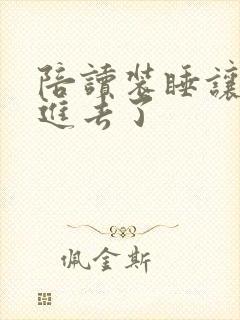 陪讀裝睡讓
進去了
佩金斯